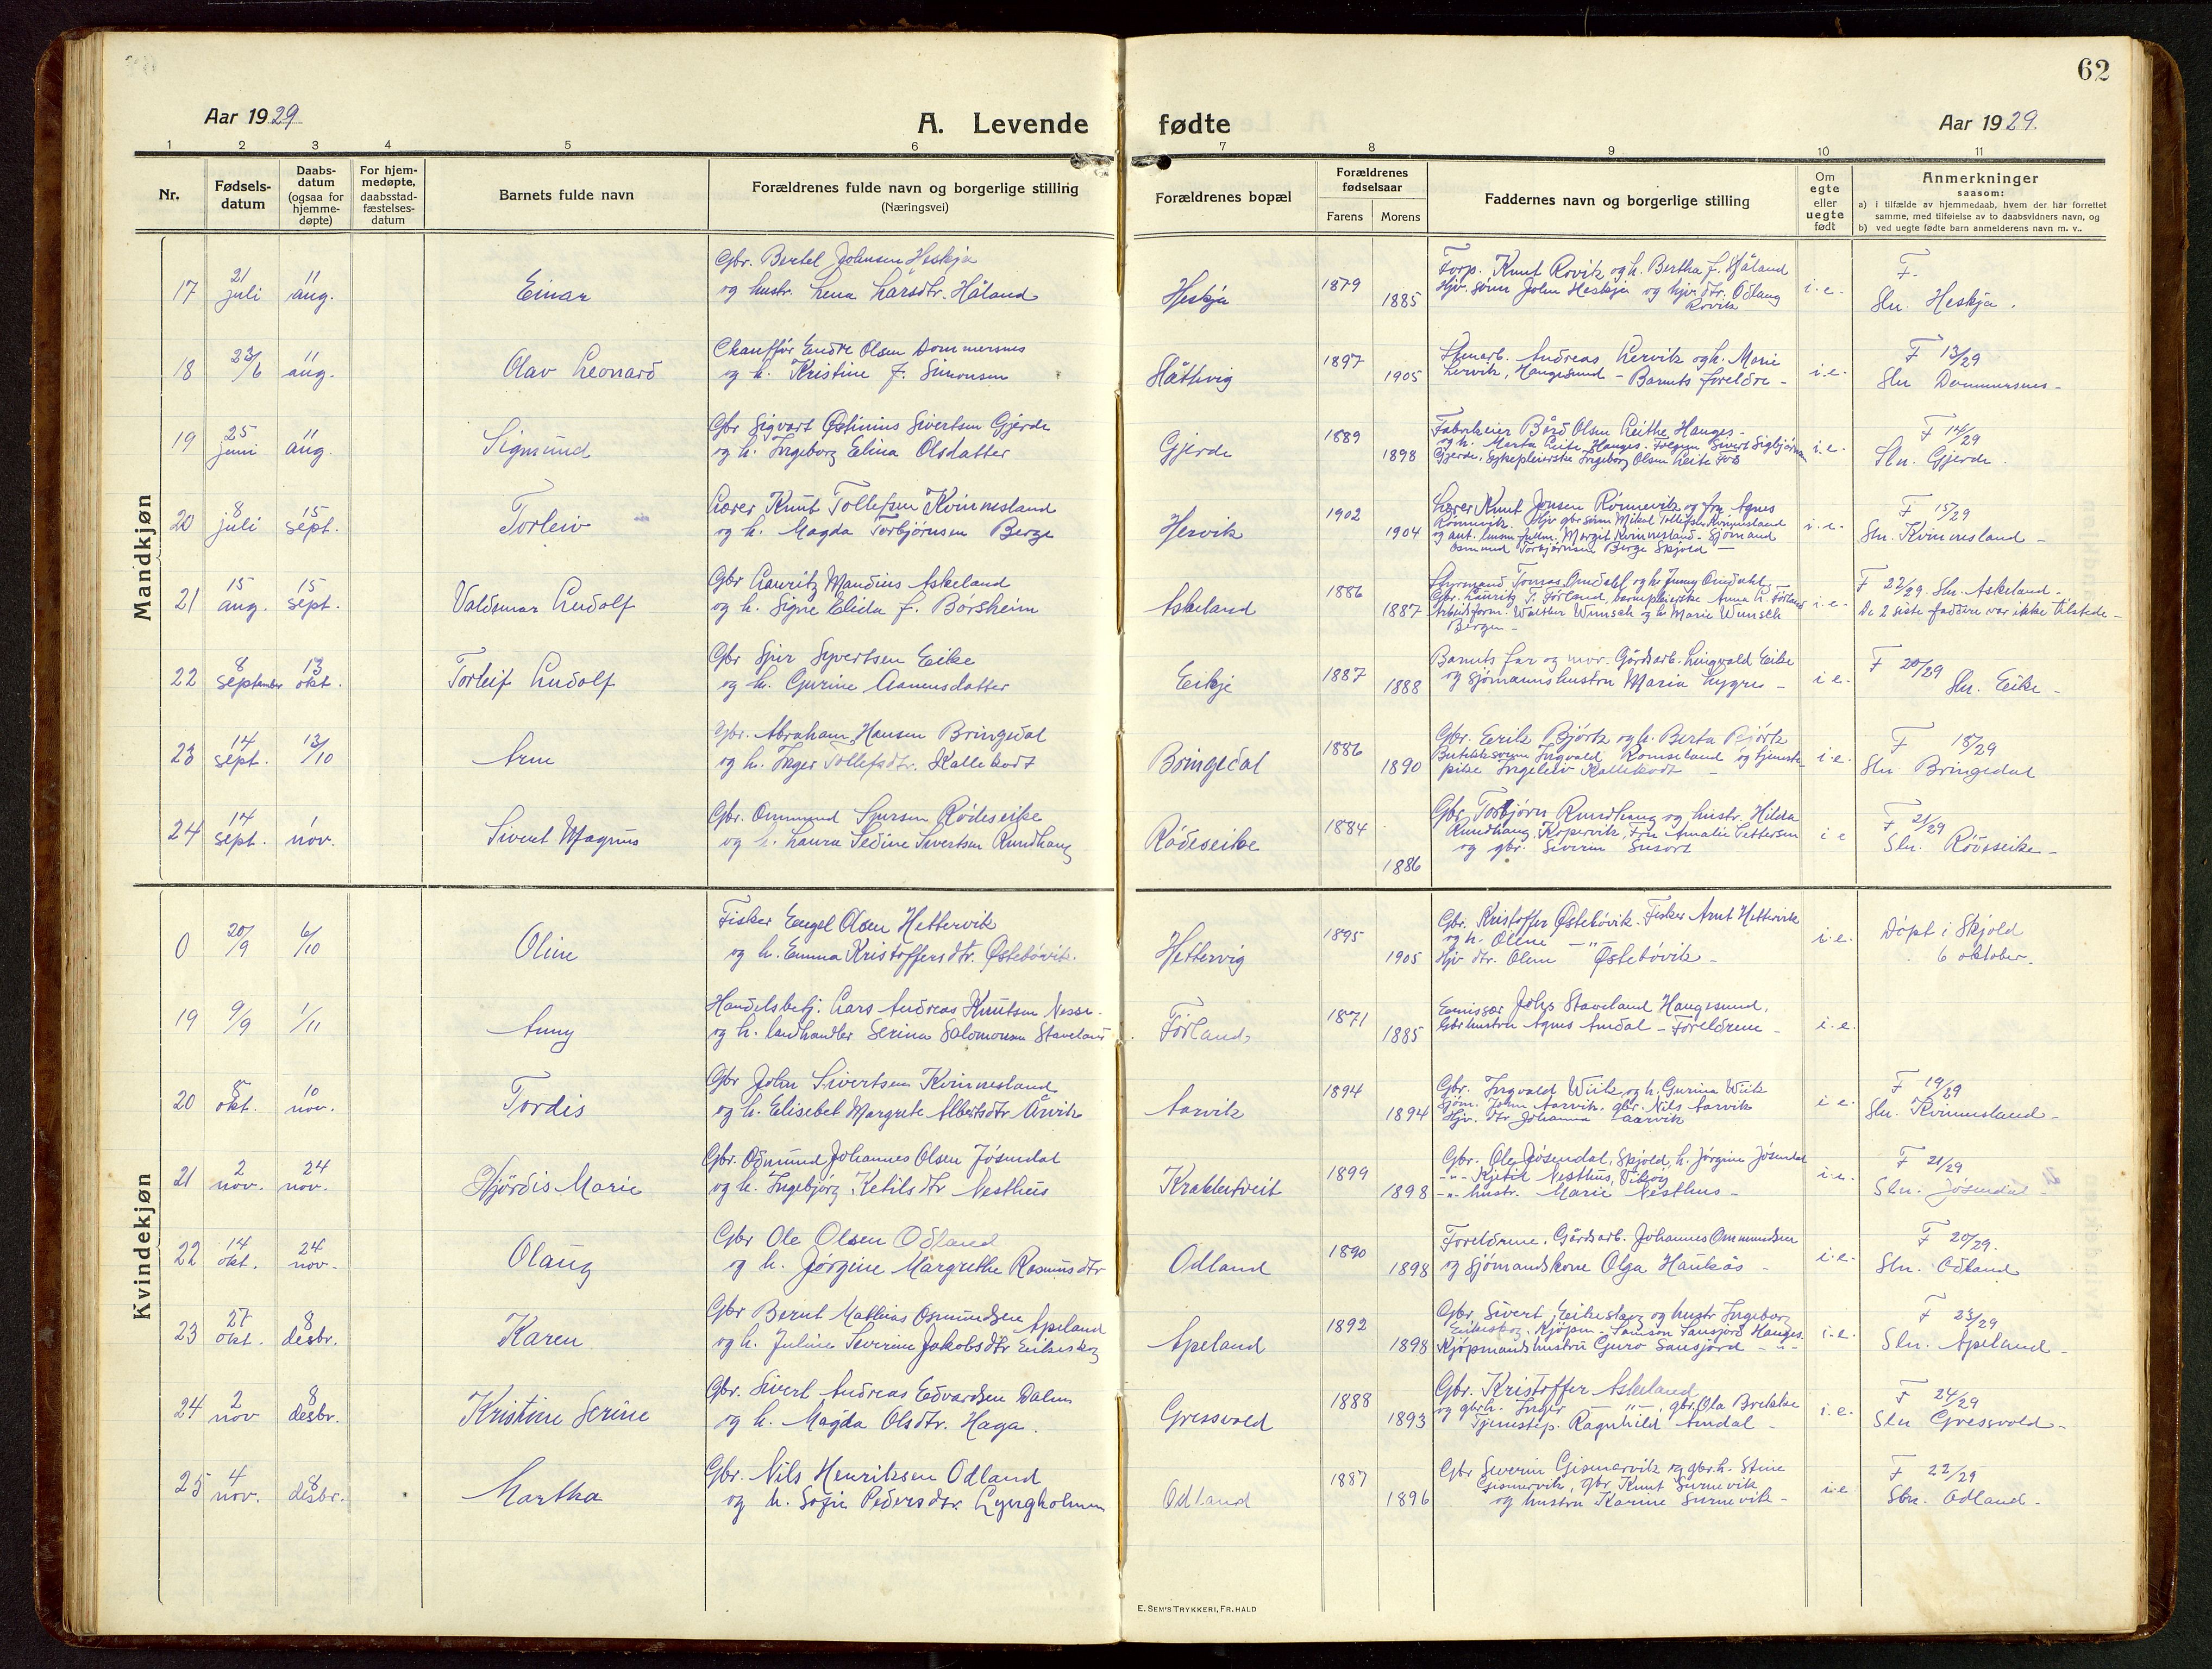 62
Aar 1929
A. Levende fødte
Aar 1929.
1 2 3 4 5 6 7 8 9 10 11
Nr.
Fødsels-
datum
Daabs-
datum
(ogsaa for
hjemme-
døpte)
For hjem-
medøpte,
daabsstad-
fæstelses-
datum
Barnets fulde navn
Forældrenes fulde navn og borgerlige stilling
(Næringsvei)
Forældrenes bopæl
Forældrenes
fødselsaar
Farens Morens
Faddernes navn og borgerlige stilling
Om
egte
eller
uegte
født
Anmerkninger
saasom:
a) i tilfælde av hjemmedaab, hvem der har forrettet
samme, med tilføielse av to daabsvidners navn, og
b) ved uegte fødte barn anmelderens navn m. v..
Mandkjøn
17 21 juli 11 aug. Einar
Gbr. Bertel Johnsen Heskja
og hustr. Lena Larsdtr. Håland
Heskja 1879 1885
Forp. Knut Rovik og h. Bertha f. Håland
Hjv. sønn John Heskja og hjv. dtr. Odlaug
Rovik
i.e.
F.
Sln. Heskja.
18 23/6 11 aug. Olav Leonard
Chauffør Endre Olsen Dommersnes
og h. Kristine f. Simonsen
Håthvig 1897 1905
Stenarb. Andreas Lervik og h. Marie
Lervik, Haugesund - Barnets foreldre -
i.e.
F 13/29
Sln Dommersnes -
19 25 juni 11 aug. Sigmund
Gbr Sigvart Østinius Sivertsen Gjerde
og h. Ingeborg Elina Olsdatter
Gjerde 1889 1898
Fabrikeier Bård Olsen Leithe Hauges -
og h. Marta Leite Hauges. Sivert Sigbjørnsen
Gjerde. Sykepleierske Ingeborg Olsen Leite
i.e.
F 14/29
Sln. Gjerde.
20 8 juli 15 sept. Torleiv
Lærer Knut Tollefsen Kvinnesland
og h. Magda Torbjørnsen Berge
Hervik 1902 1904
Lærer Knut Jonsen Rönnevik og fru Agnes
Rönnevik. Hjv gbr sönn Mikal Tollefsen Kvinnesland
Margit Kvinnesland - Sjömand
Osmund Torbjörnsen Berge Skjold -
i.e.
F 15/29
Sln. Kvinnesland -
21 15 aug. 15 sept. Valdemar Ludolf
Gbr Lauritz Mandius Askeland
og h. Signe Elida f. Børsheim
Askeland 1886 1887
Styrmand Tomas Omdahl og h. Jenny Omdahl
Gbr. Lauritz S. Förland, barnepleierske Anna L. Förland
Arbeidsform. Walther Wunsch og h Marie Wunsch
Bergen -
i.e.
F 22/29. Sln. Askeland -
De 2 siste faddere var ikke tilstede -
22 8 september 13 okt. Torleif Ludolf
Gbr Sjur Syvertsen Eike
og h. Gurine Aanensdatter
Eikje 1887 1888
Barnets far og mor. Gårdsarb. Lingvald Eike
og sjømannshustru Maria Lygre -
i e.
F 20/29
Sln. Eike -
23 14 sept. 13/10 Arne
Gbr. Abraham Hansen Bringedal
og h. Inger Tollefsdtr. Kallekodt
Bringedal 1886 1890
Gbr. Eerik Bjørk og h. Berta Bjørk
Butikksvenn Ingvald Romseland og tjeneste-
pike Ingeleiv Kallekodt -
i.e.
F 18/29
Sln Bringedal
24 14 sept. 1 nov. Sivert Magnus
Gbr. Ommund Sjursen Rödeseike
og h. Laura Sedine Sivertsen Rundhaug
Rödeseike 1884 1886
Gbr Torbjörn Rundhaug og hustr. Hilda
Rundhaug, Kopervik, Fru Amalie Pettersen
og gbr. Severin Susort
i e
F 21/29
Sln. Rödeseike -
Kvindekjøn
0 20/9 6/10 Oline
Fisker Engel Olsen Hettervik
og h. Emma Kristoffersdtr. Østebövik.
Hettervig 1895 1905
Gbr. Kristoffer Østebövik. Fisker Arnt Hettervik
og h. Oline — " —
Hjv dtr. Olene - Østebövik -
i.e.
Döpt i Skjold
6 oktober.
19 9/9 1/11 Anny
Handelsbetj. Lars Andreas Knutsen Nesse -
og h. landhandler Serina Salomonsen Staveland
Förland, 1871 1885
Emissær Johs Staveland Haugesund.
Gbr hustru Agnes Amdal - Foreldrene -
i.e.
20 8 okt. 10 nov. Tordis
Gbr John Sivertsen Kvinnesland
og h. Elisebet Margrete Albertsdtr Årvik
Aarvik 1894 1894
Gbr. Ingvald Wiik og h. Gurina Wiik
Sjöm. John Aarvik. gbr. Nils Aarvik
Hjv. dtr Johanna Aarvik
i e.
F 19/29
Sln. Kvinnesland -
21 2 nov. 24 nov. Hjördis Marie
Gbr. Odmund Johannes Olsen Jösendal
og h. Ingebjørg Ketilsdtr Nesthus
Krakketveit 1899 1898
Gbr. Ole Jösendal, Skjold, h. Jörgine Jösendal
-"- Kjetil Nesthus,
-"- hustr. Marie Nesthus -
i.e.
F 21/29
Sln. Jösendal -
22 14 okt. 24 nov. Olaug
Gbr Ole Olsen Odland
og h. Jørgine Margrethe Rasmusdtr
Odland 1890 1898
Foreldrene. Gårdsarb. Johannes Ommundsen
og sjömandskone Olga Haukås -
i.e.
F 20/29.
Sln. Odland
23 27 okt. 8 desbr. Karen
Gbr Bernt Mathias Osmundsen Apeland
og h. Juline Severine Jakobsdtr Eikeskog
Apeland 1892 1898
Gbr Sivert Eikeskog og hustr Ingeborg
Eikeskog. Kjöpm. Samson Sansjord Hauges.
Kjöpmands hustru Guro Sansjord - " -
i.e.
F 23/29
Sln. Apeland -
24 2 nov 8 desbr. Kristine Serine
Gbr. Sivert Andreas Edvardsen Dalen
og h. Magda Olsdtr. Haga.
Gressvold 1888 1893
Gbr. Kristoffer Askeland
og gbrh. Inger -"-, gbr. Ola Brekke
Tjenstep. Ragnhild Amdal -
i.e.
F 24/29
Sln Gressvold -
25 4 nov. 8 desbr. Martha
Gbr. Nils Henriksen Odland
og h. Sofie Pedersdtr Lyngholmen
Odland 1887 1896
Gbr Severin Gismarvik og gbr.h. Stine
Gismarvik, Gbr. Knut Surnevik
og hustru Karine Surnevik -
i.e
F 22/29
Sln. Odland -
E. SEM'S TRYKKERI, FR. HALD